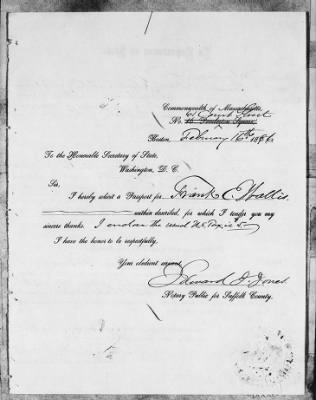 Commonwealth of Massachusetts.
Court Street
No. 15 Pemberton Square
Boston, February 16th 1886
To the Honorable Secretary of State,
Washington, D. C.
Sir,
I hereby submit a Passport for Frank E. Wallis
within described, for which I tender you my
sincere thanks. I enclose the usual
I have the honor to be respectfully,
Your obedient servant
Edward J. Jones
Notary Public for Suffolk County.